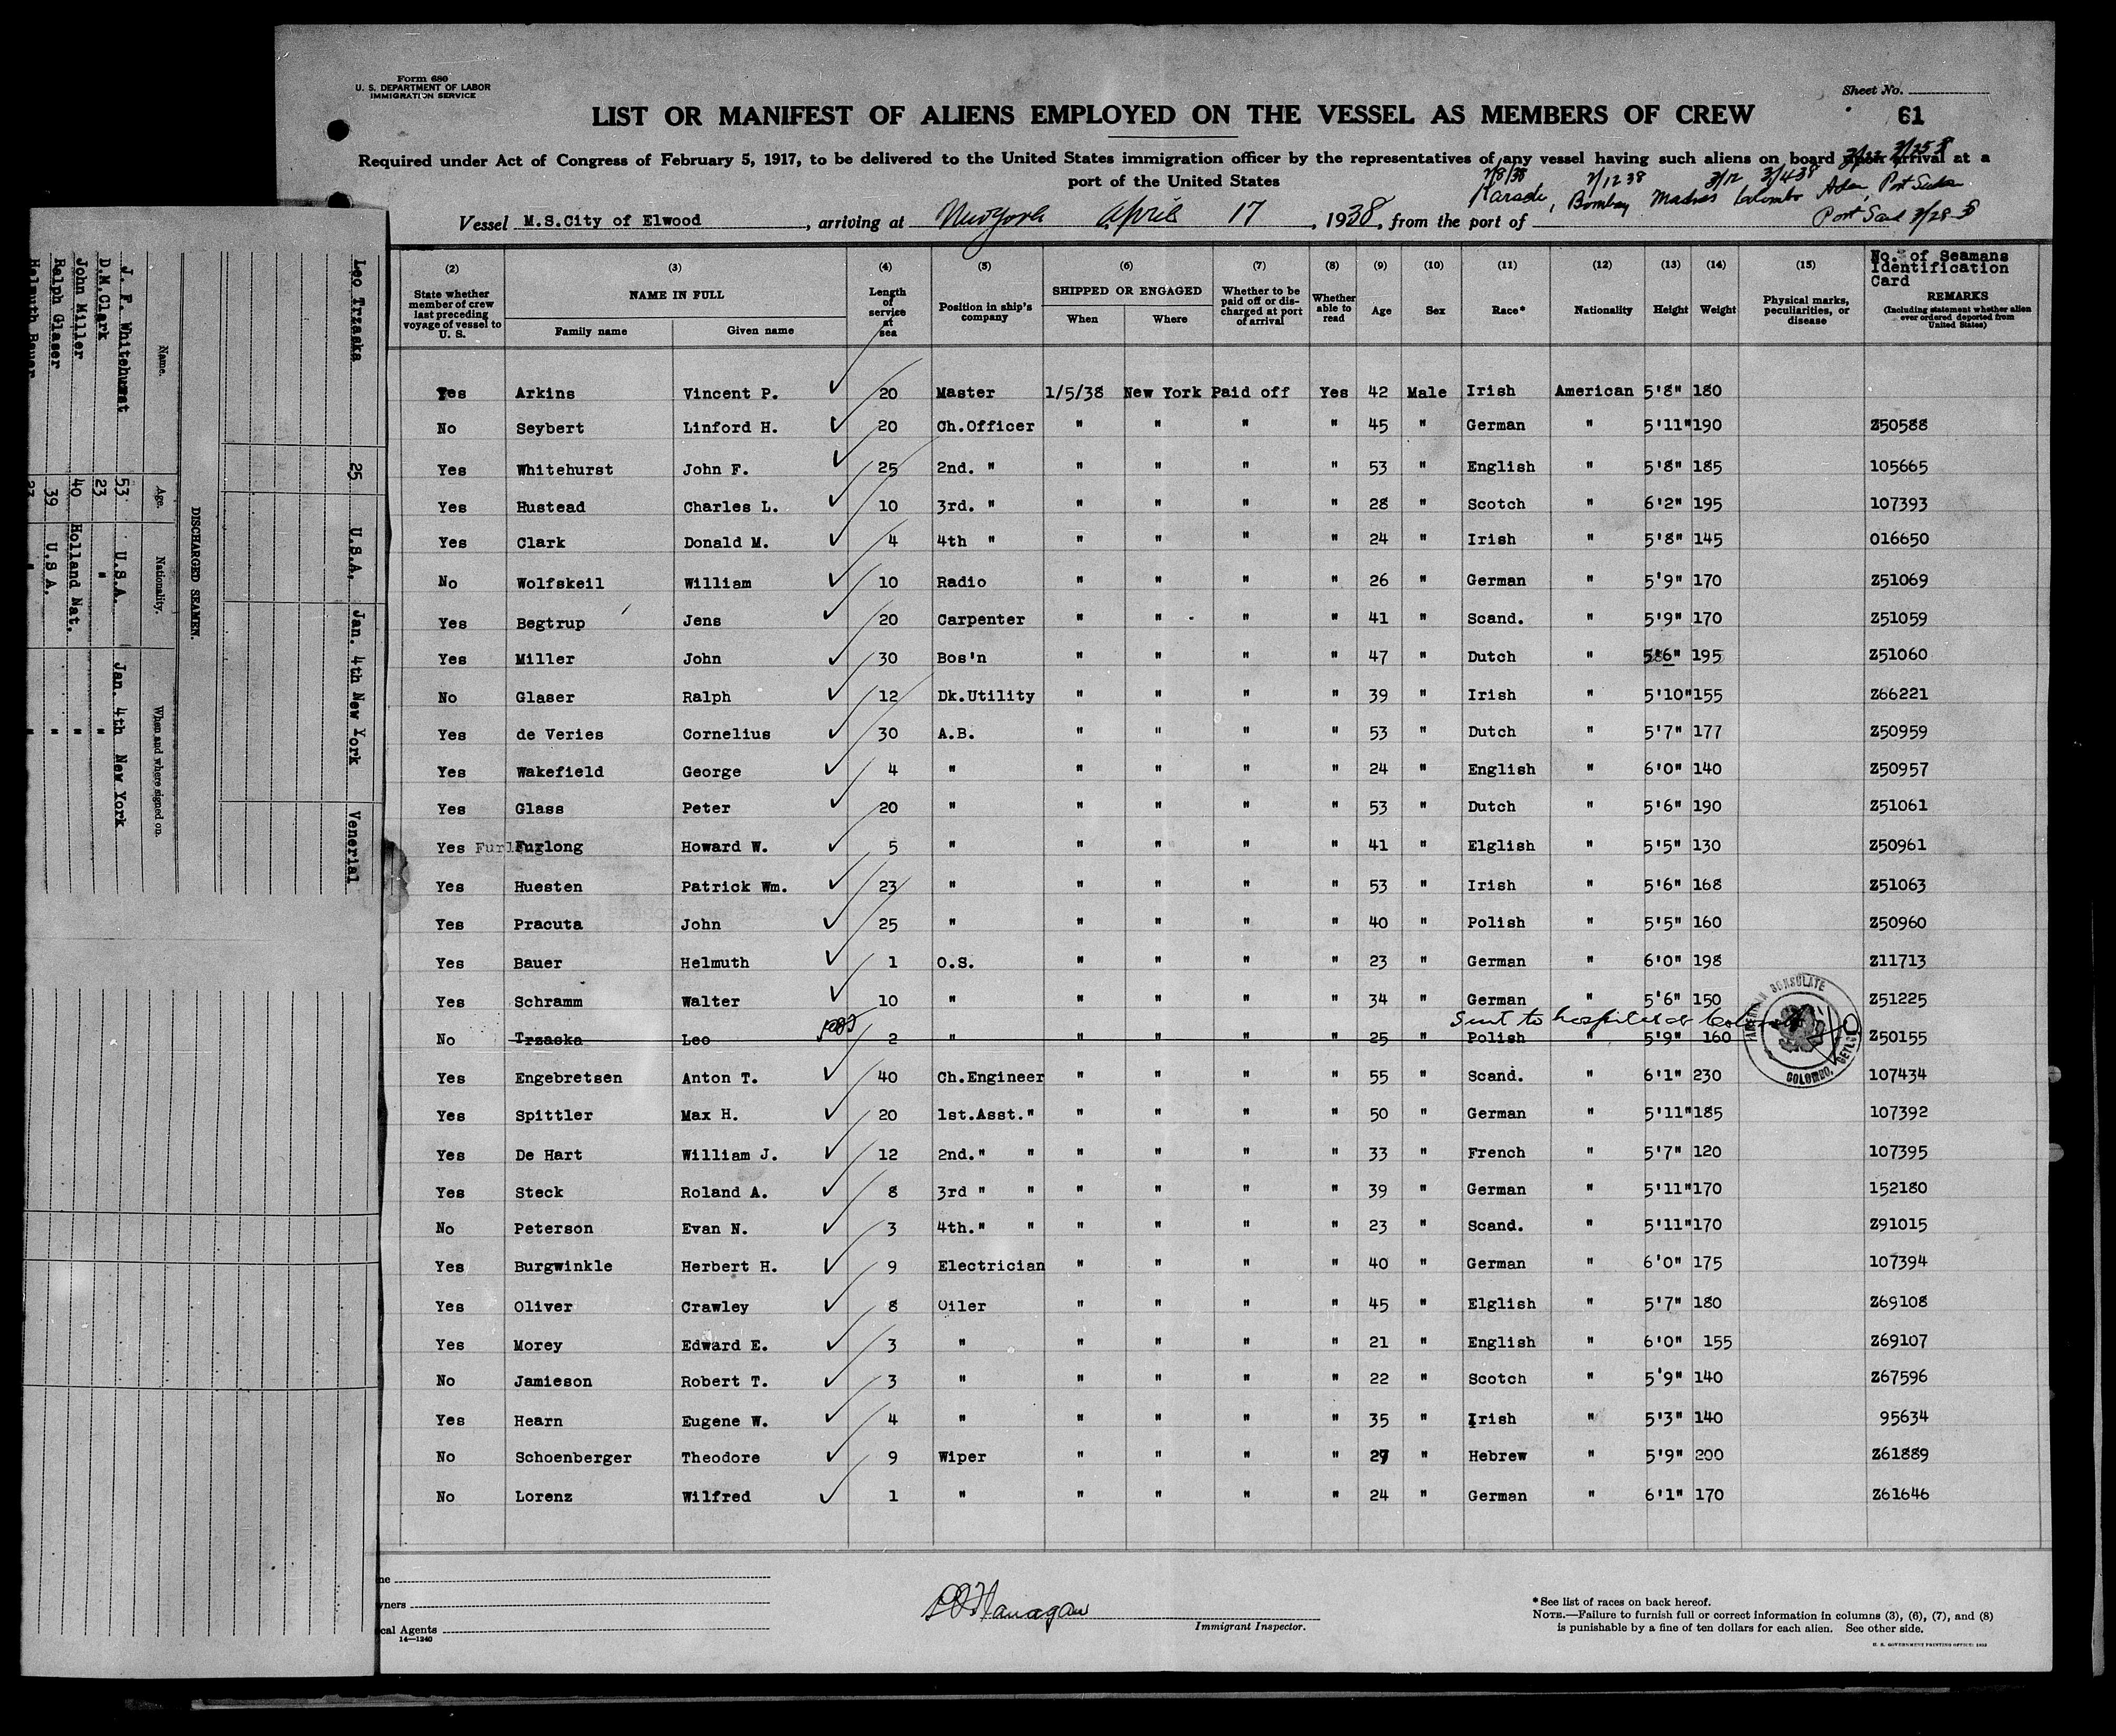 Form 680
U. S. DEPARTMENT OF LABOR
IMMIGRATION SERVICE
Sheet No.
LIST OR MANIFEST OF ALIENS EMPLOYED ON THE VESSEL AS MEMBERS OF CREW
61
Required under Act of Congress of February 5, 1917, to be delivered to the United States immigration officer by the representatives of any vessel having such aliens on board upon arrival at a
port of the United States
Vessel M.S.City of Elwood, arriving at New York April 17, 1938, from the port of Bombay Madras Colombo Aden, Port Sudan
Port Said
(2) (3) (4) (5) (6) (7) (8) (9) (10) (11) (12) (13) (14) (15) No. of Seamans Identification Card
State whether member of crew last preceding voyage of vessel to U. S. NAME IN FULL Family name Given name Length of service at sea Position in ship's company SHIPPED OR ENGAGED When Where Whether to be paid off or discharged at port of arrival Whether able to read Age Sex Race* Nationality Height Weight Physical marks, peculiarities, or disease REMARKS (Including statement whether alien ever ordered deported from United States)
Yes Arkins Vincent P. 20 Master 1/5/38 New York Paid off Yes 42 Male Irish American 5'8" 180
No Seybert Linford H. 20 Ch.Officer " " " " 45 " German " 5'11" 190 Z50588
Yes Whitehurst John F. 25 2nd. " " " " " 53 " English " 5'8" 185 105665
Yes Hustead Charles L. 10 3rd. " " " " " 28 " Scotch " 6'2" 195 107393
Yes Clark Donald M. 4 4th " " " " " 24 " Irish " 5'8" 145 016650
No Wolfskeil William 10 Radio " " " " 26 " German " 5'9" 170 Z51069
Yes Begtrup Jens 20 Carpenter " " " " 41 " Scand. " 5'9" 170 Z51059
Yes Miller John 30 Bos'n " " " " 47 " Dutch " 5'6" 195 Z51060
No Glaser Ralph 12 Dk.Utility " " " " 39 " Irish " 5'10" 155 Z66221
Yes de Veries Cornelius 30 A.B. " " " " 53 " Dutch " 5'7" 177 Z50959
Yes Wakefield George 4 " " " " " 24 " English " 6'0" 140 Z50957
Yes Glass Peter 20 " " " " " 53 " Dutch " 5'6" 190 Z51061
Yes Furlong Howard W. 5 " " " " " 41 " Elglish " 5'5" 130 Z50961
Yes Huesten Patrick Wm. 23 " " " " " 53 " Irish " 5'6" 168 Z51063
Yes Pracuta John 25 " " " " " 40 " Polish " 5'5" 160 Z50960
Yes Bauer Helmuth 1 O.S. " " " " 23 " German " 6'0" 198 Z11713
Yes Schramm Walter 10 " " " " " 34 " German " 5'6" 150 Z51225
Sent to hospital at Colombo
No Trzaska Leo 2 " " " " " 25 " Polish " 5'9" 160 Z50155
AMERICAN CONSULATE COLOMBO, CEYLON
Yes Engebretsen Anton T. 40 Ch.Engineer " " " " 55 " Scand. " 6'1" 230 107434
Yes Spittler Max H. 20 1st.Asst." " " " " 50 " German " 5'11" 185 107392
Yes De Hart William J. 12 2nd." " " " " " 33 " French " 5'7" 120 107395
Yes Steck Roland A. 8 3rd " " " " " " 39 " German " 5'11" 170 152180
No Peterson Evan N. 3 4th." " " " " " 23 " Scand. " 5'11" 170 Z91015
Yes Burgwinkle Herbert H. 9 Electrician " " " " 40 " German " 6'0" 175 107394
Yes Oliver Crawley 8 Oiler " " " " 45 " Elglish " 5'7" 180 Z69108
Yes Morey Edward E. 3 " " " " " 21 " English " 6'0" 155 Z69107
No Jamieson Robert T. 3 " " " " " 22 " Scotch " 5'9" 140 Z67596
Yes Hearn Eugene W. 4 " " " " " 35 " Irish " 5'3" 140 95634
No Schoenberger Theodore 9 Wiper " " " " 27 " Hebrew " 5'9" 200 Z61889
No Lorenz Wilfred 1 " " " " " 24 " German " 6'1" 170 Z61646
Immigrant Inspector.
*See list of races on back hereof.
NOTE.—Failure to furnish full or correct information in columns (3), (6), (7), and (8)
is punishable by a fine of ten dollars for each alien. See other side.
U. S. GOVERNMENT PRINTING OFFICE
cal Agents
14—1240
Leo Trzaska 25 U.S.A. Jan. 4th New York Venerial
DISCHARGED SEAMEN.
Name. Age. Nationality. When and where signed on.
J. F. Whitehurst 53 U.S.A. Jan. 4th New York
D.M.Clark 23 " "
John Miller 40 Holland Nat. "
Ralph Glaser 39 U.S A. "
Helmuth Bauer 23 " "